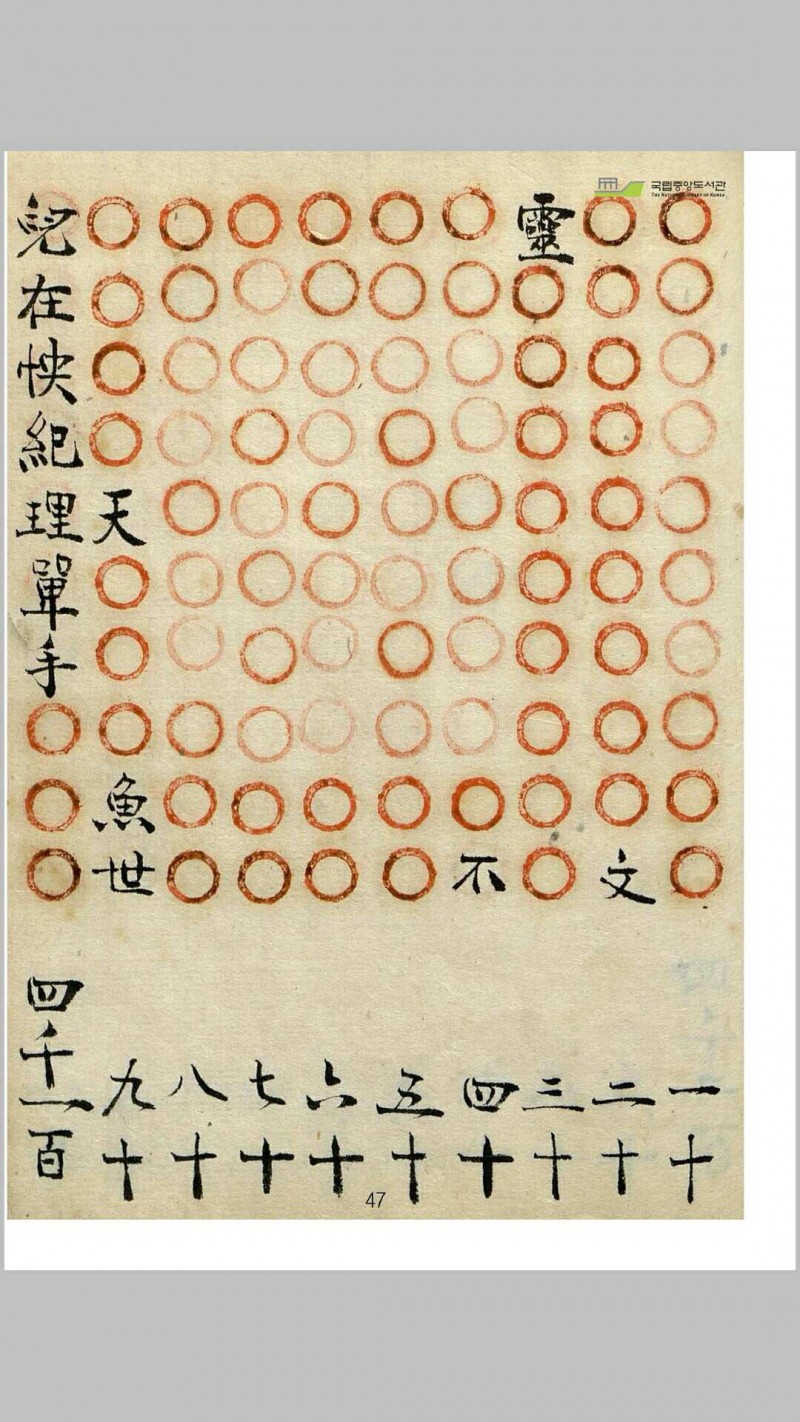 국립중앙도서관
THE NATIONAL LIBRARY OF KOREA
○○○○○○○○○○ 一十
○○○○○○○○○文 二十
靈○○○○○○○○○ 三十
○○○○○○○○○不 四十
○○○○○○○○○○ 五十
○○○○○○○○○○ 六十
○○○○○○○○○○ 七十
○○○○○○○○○○ 八十
○○○○天○○○魚世 九十
兒在怏紀理單手○○○ 四千一百
47